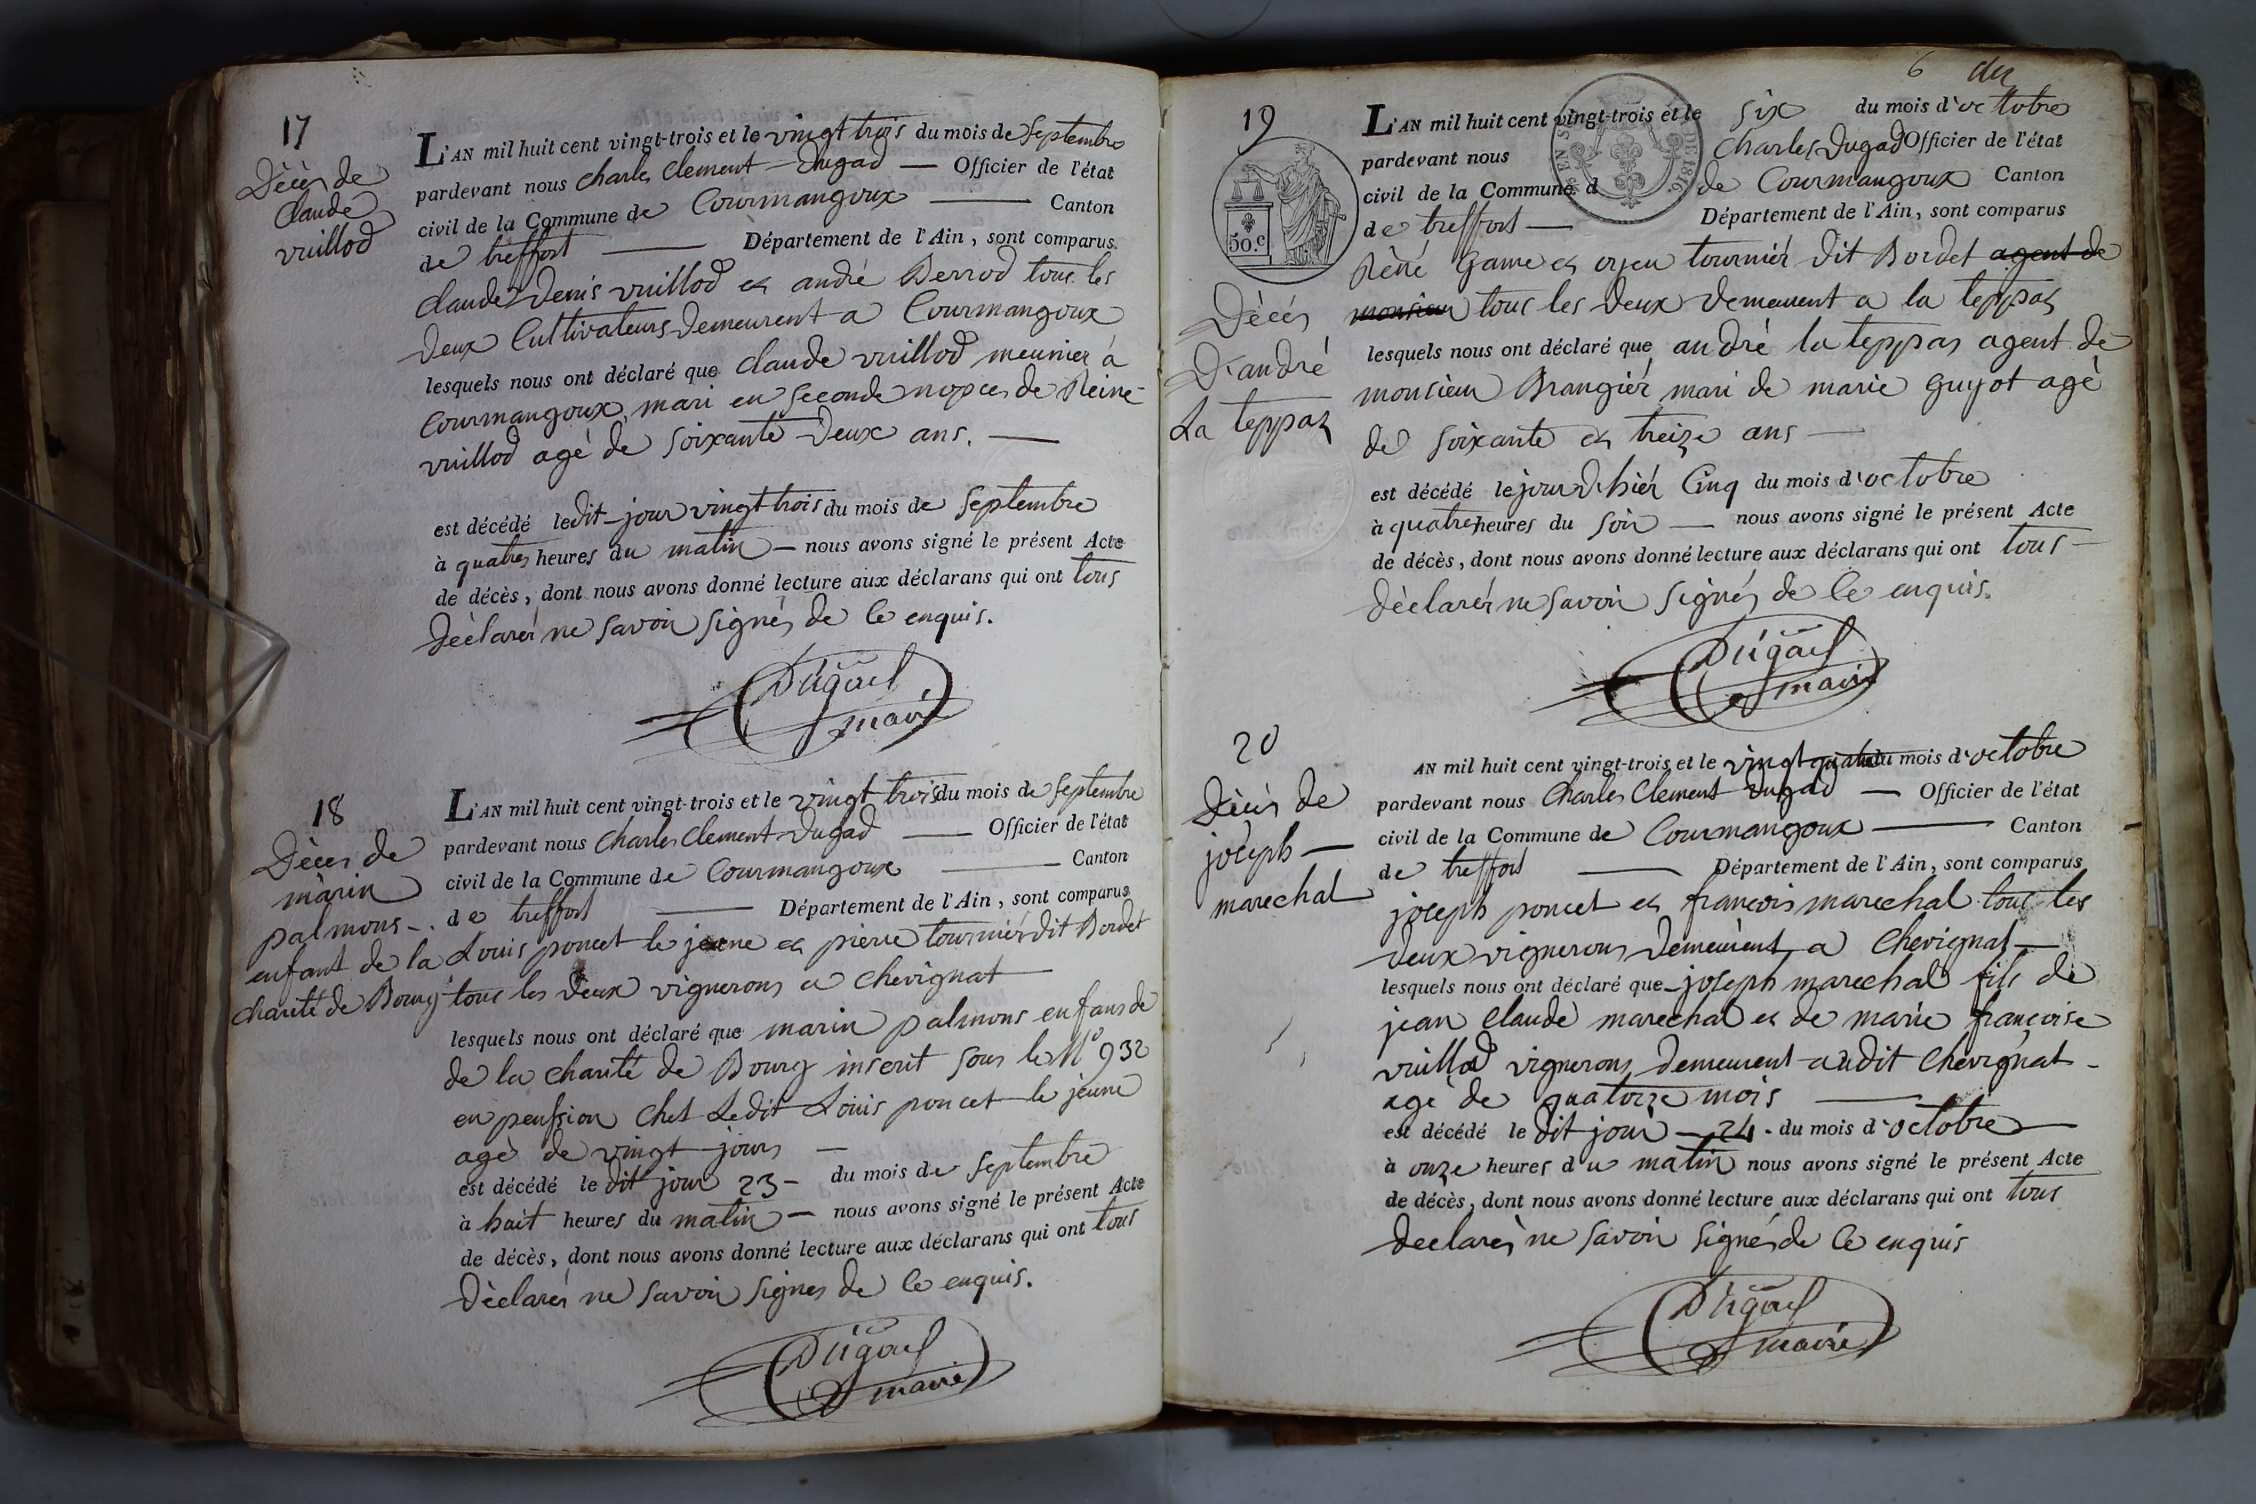 17
Décès de
claude
vuillod
L'AN mil huit cent vingt-trois et le vingt trois du mois de septembre
pardevant nous charles Clement Dugad — Officier de l'état
civil de la Commune de Courmangoux — Canton
de treffort — Département de l'Ain, sont comparus
claude Denis vuillod et andré Derrod tous les
deux Cultivateurs Demeurent a Courmangoux
lesquels nous ont déclaré que claude vuillod meunier à
Courmangoux, mari en seconde nopces de Reine
vuillod agé de soixante deux ans. —
est décédé ledit jour vingt trois du mois de septembre
à quatres heures du matin — nous avons signé le présent Acte
de décès, dont nous avons donné lecture aux déclarans qui ont tous
Déclarér ne savoir signés de ce enquis.
Dugad
maire
18
Décès de
marin
palmons -.
enfant de la
charité de Bourg
L'AN mil huit cent vingt-trois et le vingt trois du mois de septembre
pardevant nous charles Clement Dugad — Officier de l'état
civil de la Commune de Courmangoux — Canton
de treffort — Département de l'Ain, sont comparus
Louis poncet le jeune et pierre tournier dit Bordet
tous les deux vignerons a chevignat —
lesquels nous ont déclaré que marin palmons enfans de
de la charité de Bourg inscrit sous le N° 932
en pension chet Ledit Louis poncet le jeune
agé de vingt jours —
est décédé le dit jour 23 - du mois de septembre
à huit heures du matin — nous avons signé le présent Acte
de décès, dont nous avons donné lecture aux déclarans qui ont tous
Déclarér ne savoir signes de ce enquis.
Dugad
maire
6 du
19
50.c
Décés
D'andré
La teppas
L'AN mil huit cent vingt-trois et le six du mois d'octobre
pardevant nous Charles Dugad Officier de l'état
civil de la Commune d de Courmangoux Canton
de treffort — Département de l'Ain, sont comparus
Réné Game et tournier dit Bordet agent de
monsieur tous les deux Demeurent a la teppas
lesquels nous ont déclaré que andré la teppas agent de
monsieur Brangiér mari de marie guyot agé
de soixante et treize ans —
est décédé le jour d'hiér Cinq du mois d'octobre
à quatre heures du soir — nous avons signé le présent Acte
de décès, dont nous avons donné lecture aux déclarans qui ont tous —
Déclarér ne savoir signés de ce enquis.
Dugad
maire
20
Décès de
joseph —
marechal
AN mil huit cent vingt-trois et le vingt quatre du mois d'octobre
pardevant nous Charles Clement Dugad — Officier de l'état
civil de la Commune de Courmangoux — Canton
de treffort — Département de l'Ain, sont comparus
joseph poncet et francois marechal tous les
deux vignerons Demeurent a Chevignat —
lesquels nous ont déclaré que joseph marechal fils de
jean claude marechal et de marie françoise
vuillod vignerons demeurent audit chevignat -
agé de quatorze mois —
est décédé le dit jour — 24 - du mois d'octobre —
à onze heures du matin nous avons signé le présent Acte
de décès, dont nous avons donné lecture aux déclarans qui ont tous
Declarés ne savoir signés de ce enquis
Dugad
maire